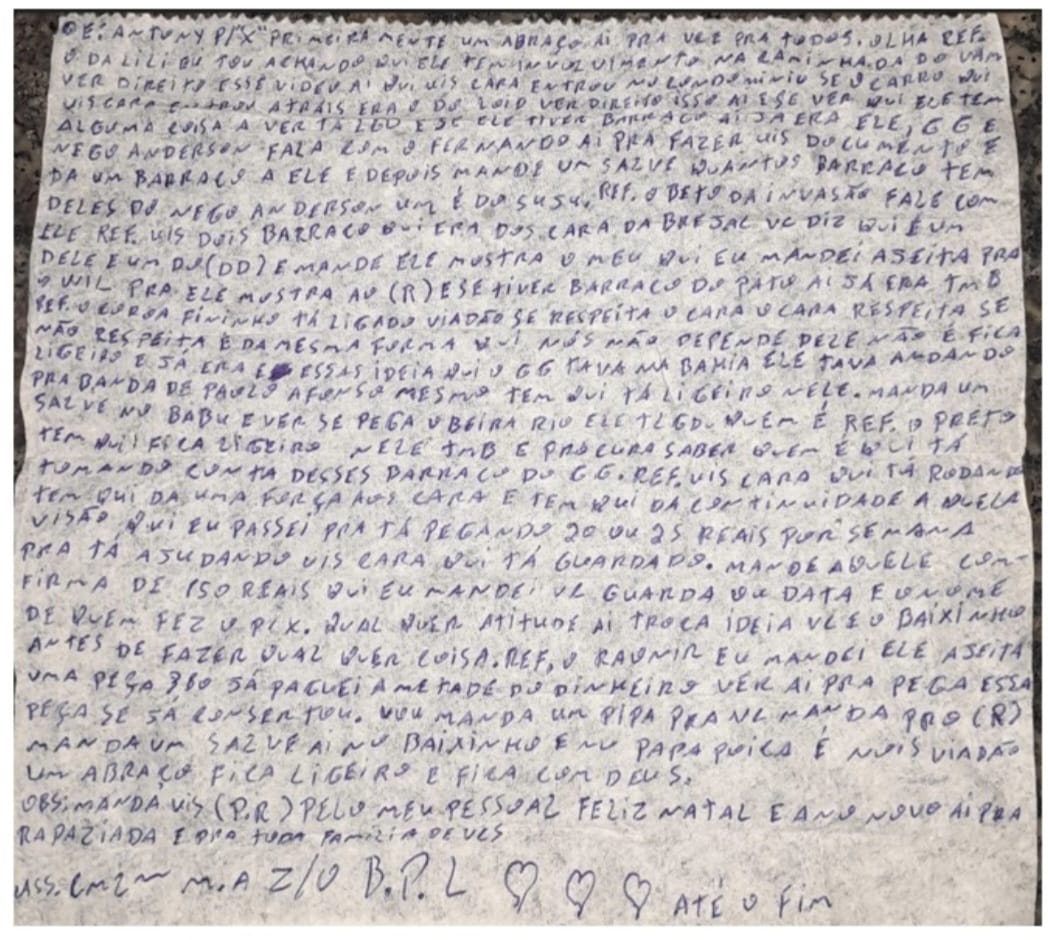 DE: ANTUNY P/"X" PRIMEIRA MENTE UM ABRAÇO AI PRA VCE PRA TODOS. OLHA REF.
O DA LILI EU TOU ACHANDO QUI ELE TEM INVOLVIMENTO NA CAMINHADA DO VAM
VER DIREITO ESSE VIDEO AI QUI UIS CARA ENTROU NO CONDOMINIU SE O CARRO QUI
UIS CARA ENTROU ATRAIS ERA O DO LOID VER DIREITO ISSO AI E SE VER QUI ELE TEM
ALGUMA COISA A VER TÁ LGD E SE ELE TIVER BARRACO AI JA ERA ELE, GG E
NEGO ANDERSON FALA COM O FERNANDO AI PRA FAZER UIS DOCUMENTO E
DA UM BARRACO A ELE E DEPOIS MANDE UM SALVE QUANTOS BARRACO TEM
DELES DO NEGO ANDERSON UM É DO SUSU. REF. O BETO DA INVASÃO FALE COM
ELE REF. UIS DUIS BARRACO QUI ERA DOS CARA DA BREJAL VC DIZ QUI É UM
DELE E UM DO (DD) E MANDE ELE MUSTRA O MEU QUI EU MANDEI AJEITA PRA
O WIL PRA ELE MUSTRA AO (R) E SE TIVER BARRACO DO PATO AI JÁ ERA TMB
REF. O COROA FININHO TÁ LIGADO VIADÃO SE RESPEITA O CARA O CARA RESPEITA SE
NÃO RESPEITA É DA MESMA FORMA QUI NÓS NÃO DEPENDE DELE NÃO É FICA
LIGEIRO E JÁ ERA E ESSAS IDEIA QUI O GG TAVA NA BAHIA ELE TAVA ANDANDO
PRA BANDA DE PAULO AFONSO MESMO TEM QUI TÁ LIGEIRO NELE. MANDA UM
SALVE NO BABU E VER SE PEGA O BEIRA RIO ELE TLGD. QUEM É REF. O PRETO
TEM QUI FICA LIGEIRO NELE TMB E PROCURA SABER QUEM É QUI TÁ
TOMANDO CONTA DESSES BARRACO DO GG. REF. UIS CARA QUI TÁ RODANDO
TEM QUI DA UMA FORÇA AOS CARA E TEM QUI DA CONTINUIDADE A QUELA
VISÃO QUI EU PASSEI PRA TÁ PEGANDO 20 OU 25 REAIS POR SEMANA
PRA TÁ AJUDANDO UIS CARA QUI TÁ GUARDADO. MANDE AQUELE COM-
FIRMA DE 150 REAIS QUI EU MANDEI VC GUARDA OU DATA E O NOME
DE QUEM FEZ O PIX. QUAL QUER ATITUDE AI TROCA IDEIA VC E O BAIXINHO
ANTES DE FAZER QUAL QUER COISA. REF, O RAUNIR EU MANDEI ELE AJEITA
UMA PEÇA 380 JÁ PAGUEI A METADE DO DINHEIRO VER AI PRA PEGA ESSA
PEÇA SE JÁ CONSERTOU. VOU MANDA UM PIPA PRA VC MANDA PRO (R)
MANDA UM SALVE AI NO BAIXINHO E NO PAPA POICA É NUIS VIADÃO
UM ABRAÇO FICA LIGEIRO E FICA COM DEUS.
OBS: MANDA UIS (P.R) PELO MEU PESSOAL FELIZ NATAL E ANO NOVO AI PRA
RAPAZIADA E PRA TODA FAMÍLIA DE VCS
ASS. M.A Z/O B.P.L ♡ ♡ ♡ ATÉ O FIM